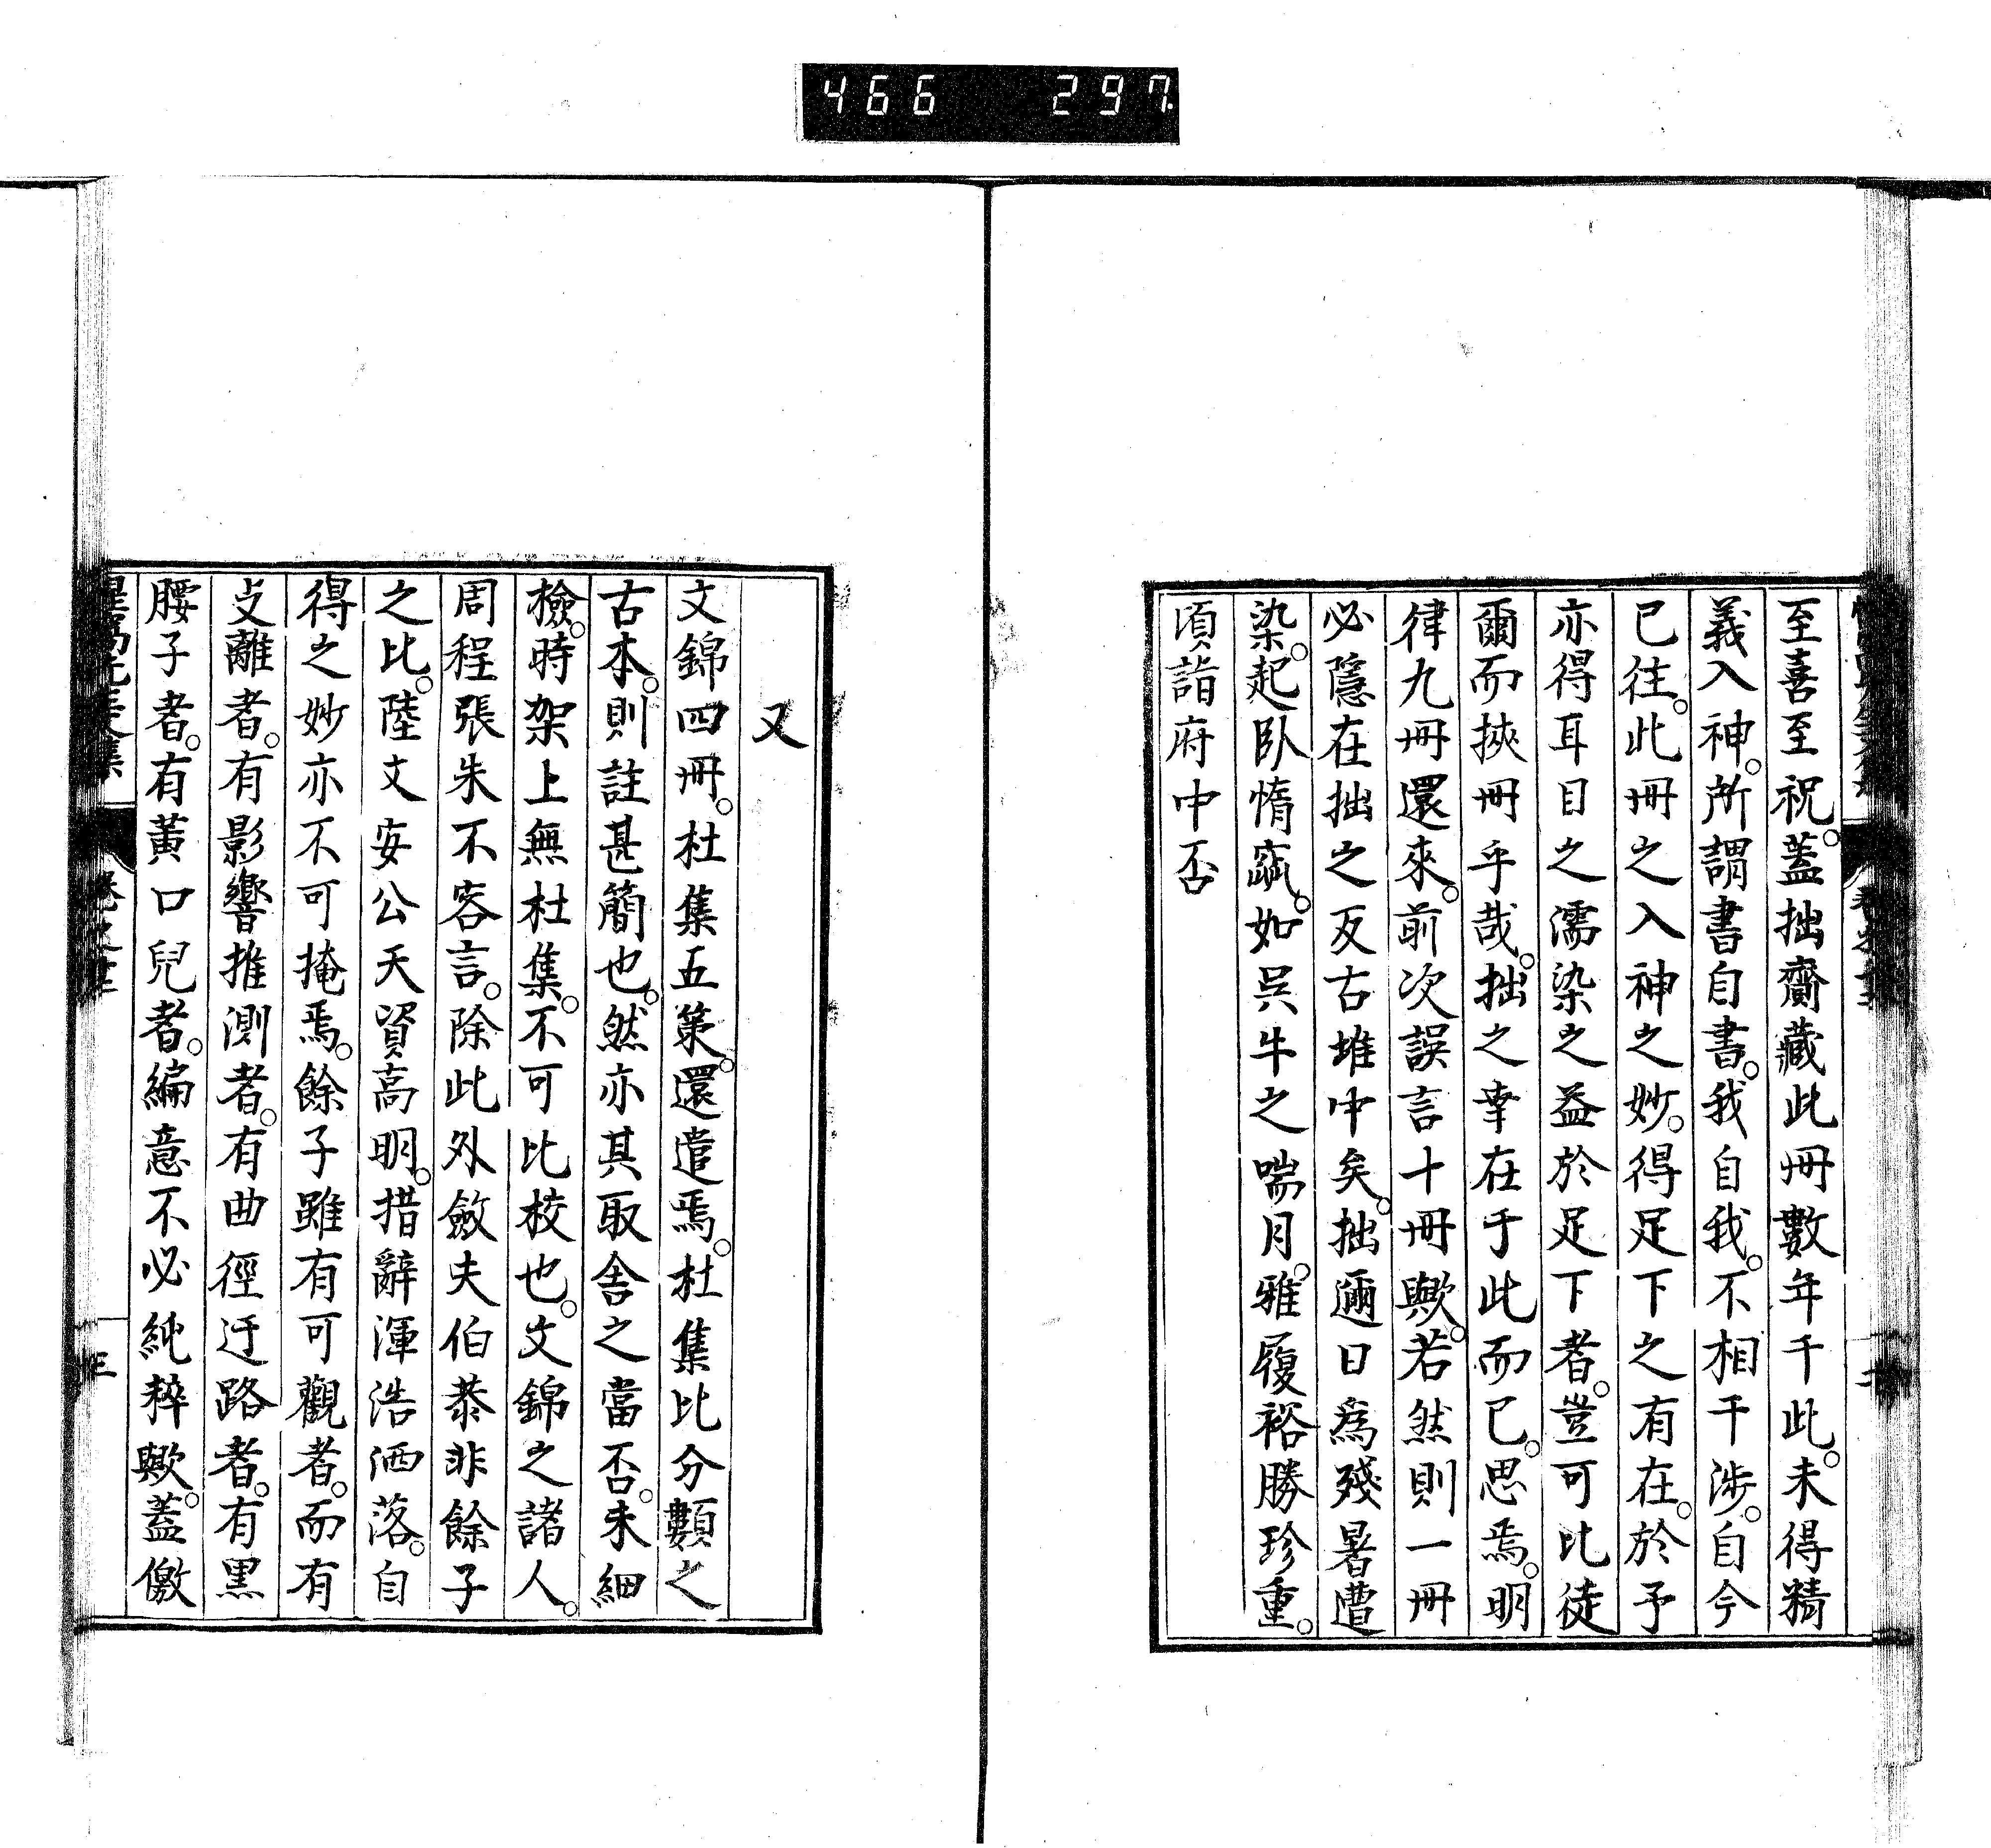 466 297
至喜至祝。蓋拙齋藏此冊數年千此。未得精
義入神。所謂書自書。我自我。不相干涉。自今
已往。此冊之入神之妙。得足下之有在。於予
亦得耳目之濡染之益於足下者。豈可比徒
爾而挾冊乎哉。拙之幸在于此而已。思焉。明
律九冊還來。前次誤言十冊歟。若然則一冊
必隱在拙之反古堆中矣。拙邇日爲殘暑遭
染。起臥惰窳。如吳牛之喘月。雅履裕勝珍重。
頃詣府中否
又
文錦四冊。杜集五策。還遣焉。杜集比分類之
古本。則註甚簡也。然亦其取舍之當否。未細
檢。時架上無杜集。不可比校也。文錦之諸人。
周程張朱不容言。除此外斂夫伯恭非餘子
之比。陸文安公天資高明。措辭渾浩洒落。自
得之妙亦不可掩焉。餘子雖有可觀者。而有
支離者。有影響推測者。有曲徑迂路者。有黑
腰子者。有黃口兒者。編意不必純粹歟。蓋儌